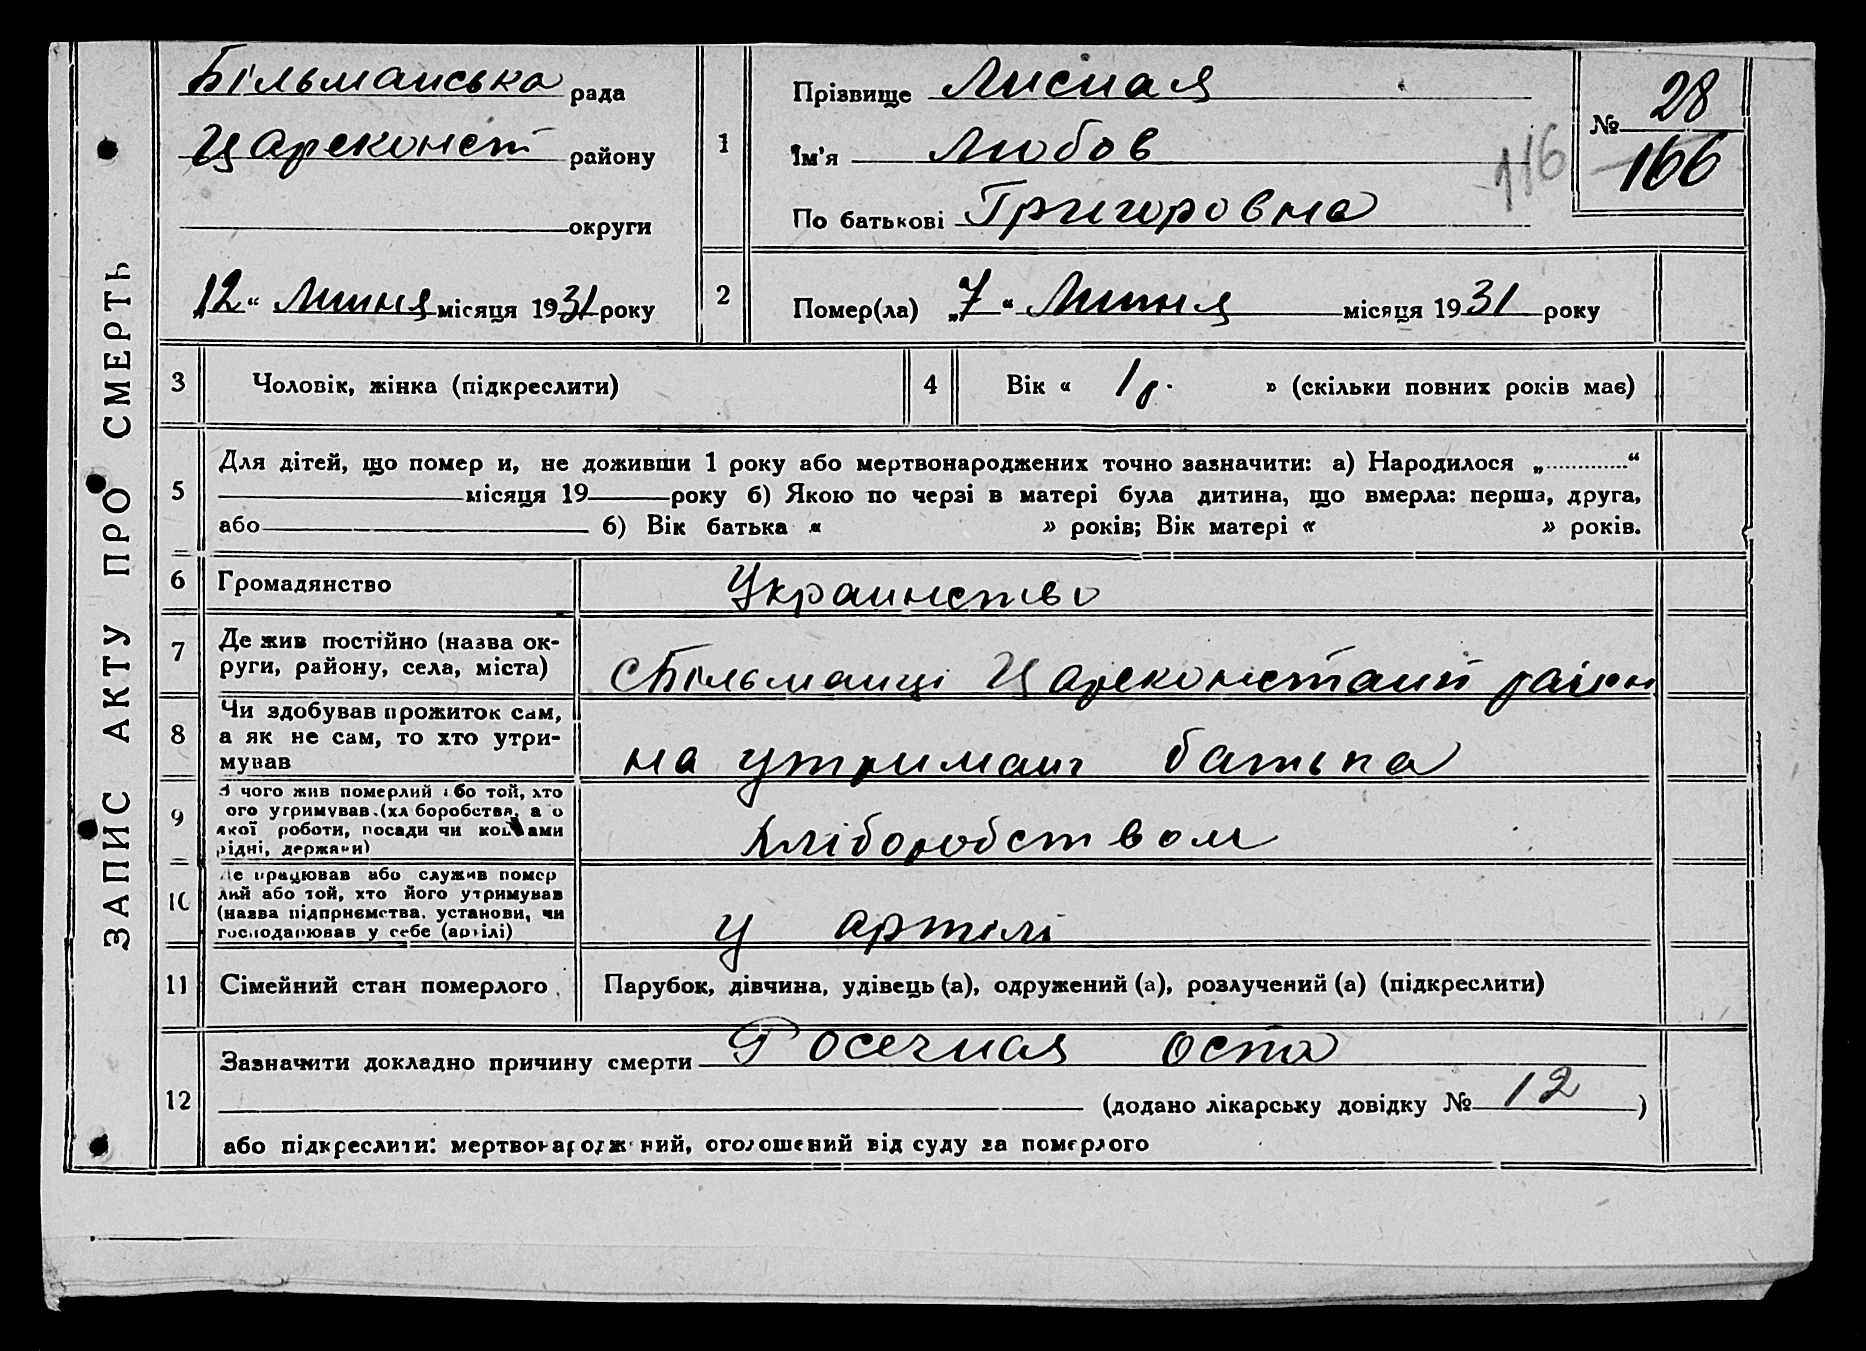 ЗАПИС АКТУ ПРО СМЕРТЬ
Більманська рада
Царсконст району
округи
12 “ Липня місяця 1931 року
1
Прізвище Лисная
Ім’я Любов
По батькові Григоровна
№ 28
166
116
2
Помер(ла) „7 “ Липня місяця 1931 року
3 Чоловік, жінка (підкреслити)
4 Вік « 1 р. » (скільки повних років має)
5
Для дітей, що помер и, не доживши 1 року або мертвонароджених точно зазначити: а) Народилося „............“
місяця 19 року б) Якою по черзі в матері була дитина, що вмерла: перша, друга,
або б) Вік батька « » років; Вік матері « » років.
6 Громадянство Украинство
7
Де жив постійно (назва ок-
руги, району, села, міста)
с Більманці Царсконстант район
8
Чи здобував прожиток сам,
а як не сам, то хто утри-
мував
на утримані батька
9
З чого жив померлий або той, хто
ого утримував (хл боробства, а о
якої роботи, посади чи коштами
рідні, держави)
хліборобством
10
Де працював або служив помер
лий або той, хто його утримував
(назва підприємства, установи, чи
господарював у себе (артілі)
у артілі
11 Сімейний стан померлого
Парубок, дівчина, удівець (а), одружений (а), розлучений (а) (підкреслити)
12
Зазначити докладно причину смерти оста
(додано лікарську довідку № 12 )
або підкреслити: мертвонароджений, оголошений від суду за померлого